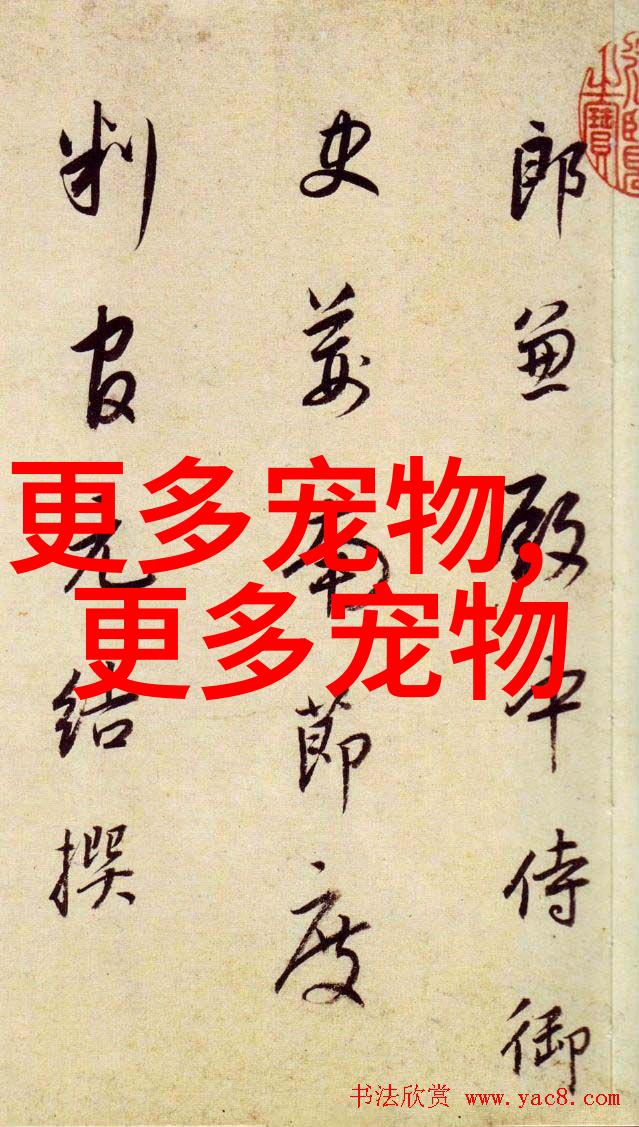 郎兼殿中侍御
史荆南節度
判官元結撰
更多宠物,
更多宠物
书法欣赏 www.yac8.com